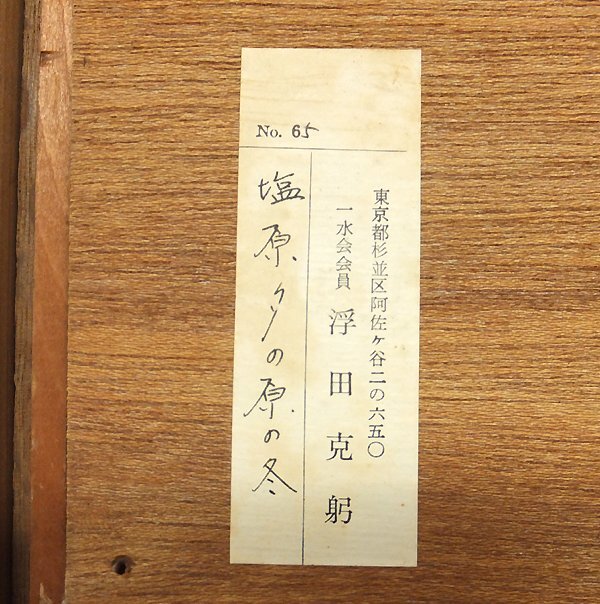 No. 65
東京都杉並区阿佐ヶ谷二の六五〇
一水会会員 浮田克躬
塩原夕の原の冬